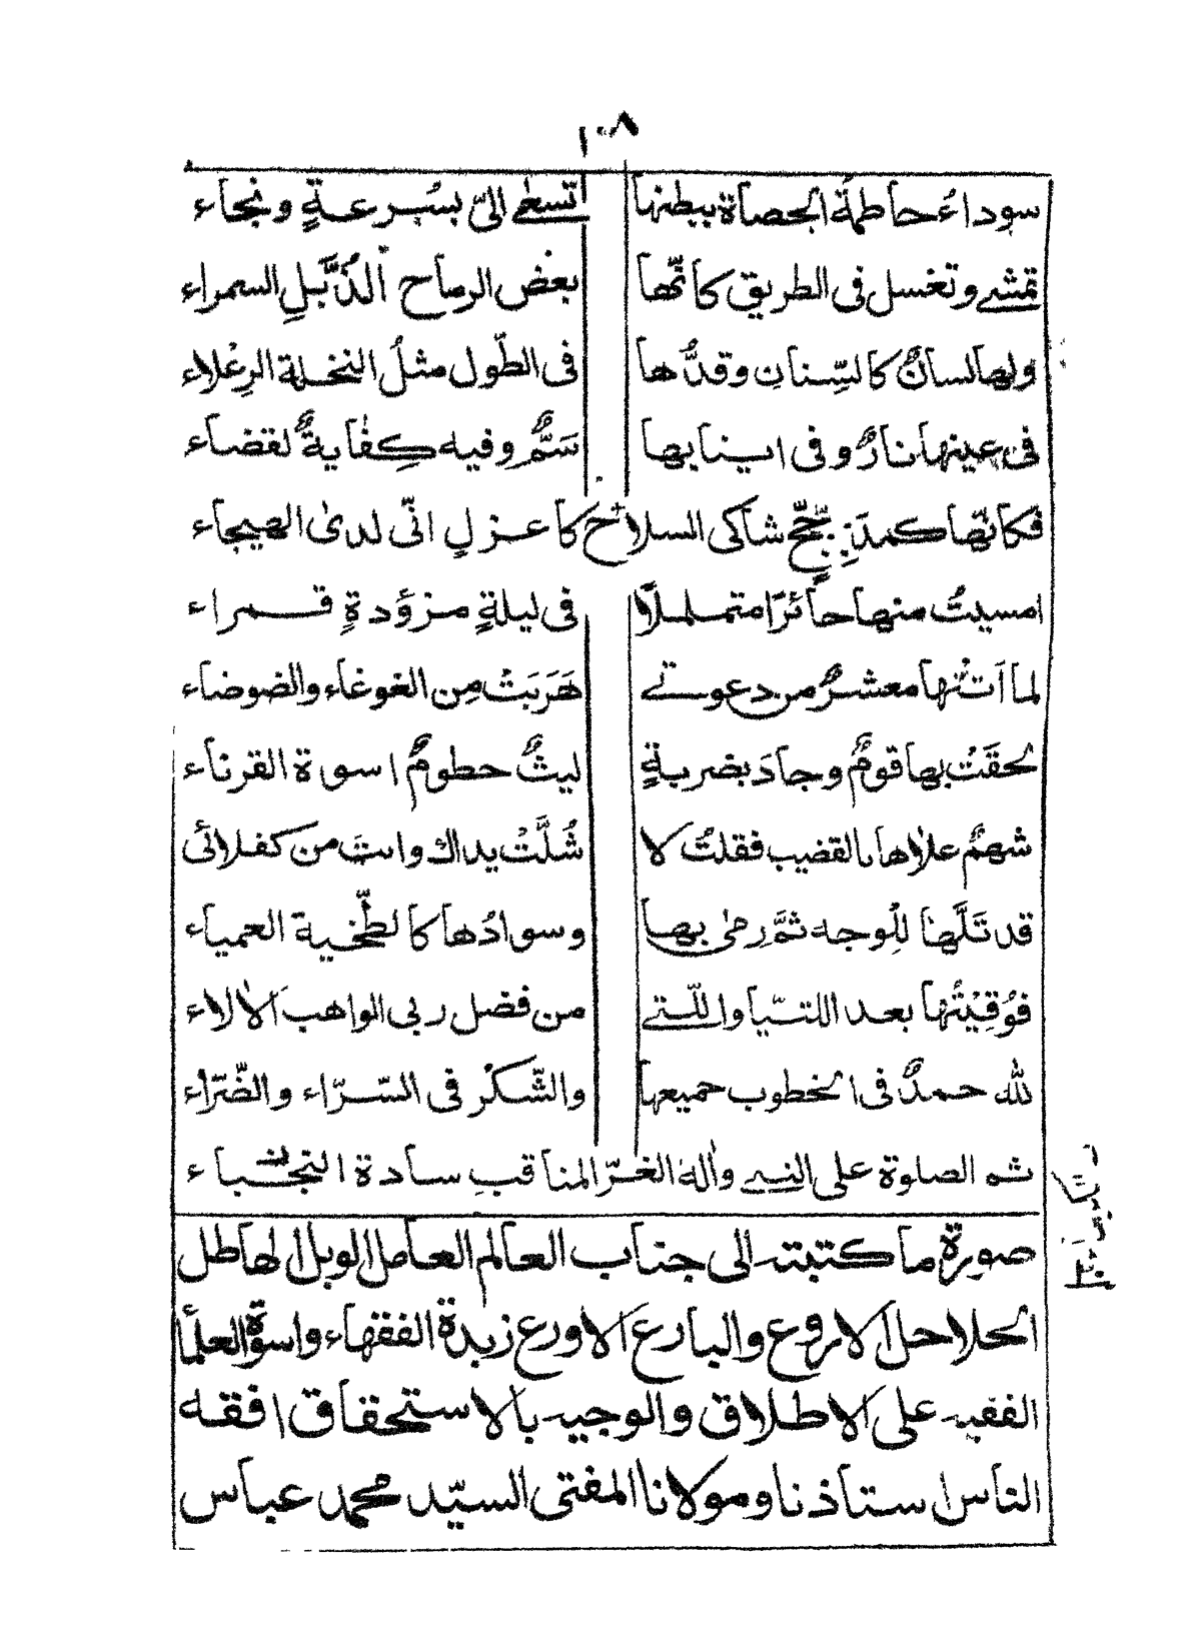 ١٠٨
سوداءُ حاطمةُ الحصاة ببطنها تسعٰى الىّ بسُرعةٍ ونجاء
تمشے وتغسل فى الطريق كانّها بعض الرماح الذُّبَّلِ السمراء
ولها لسانٌ كالسِّنانِ وقدُّها فى الطّول مثلُ النخلة الرعْلاء
فى عينها نارٌ وفى انيابها سَمٌّ وفيه كِفٰايةٌ لقضاء
فكانّها كمدَجِّجٍ شاكى السلاح كاعزلٍ انّى لدىٰ الهيجاء
امسيتُ منها حائرًا متململًا فى ليلةٍ مزؤدةٍ قمراء
لما اَتتْها معشرٌ من دعوتے هَرَبَتْ مِن الغوغاء والضوضاء
لحقَتْ بها قومٌ وجادَ بضربةٍ ليثٌ حطومٌ اسوة القرناء
شهمٌ علاها بالقضيب فقلتُ لا شُلَّتْ يداك وانتَ من كفلائى
قد تَلَّهٰا لِلوجه ثمَّ رمىٰ بها وسوادُها كالطّخية العمياء
فوُقِيْتُها بعد اللتيّا واللّتے من فضل ربى الواهب الالاء
لله حمدٌ فى الخطوب جميعها والشّكْر فى السّرّاء والضّرّاء
ثم الصلوة على النبے واٰله الغرّ المناقبِ سادة النجباء
صورة ما كتبته الى جناب العالم العامل الوبل الهاطل
الحلاحل الاروع والبارع الاورع زبدة الفقهاء واسوة العلماء
الفقيه على الاطلاق والوجيه بالاستحقاق افقه
الناس استاذنا ومولانا المفتى السيّد محمد عباس